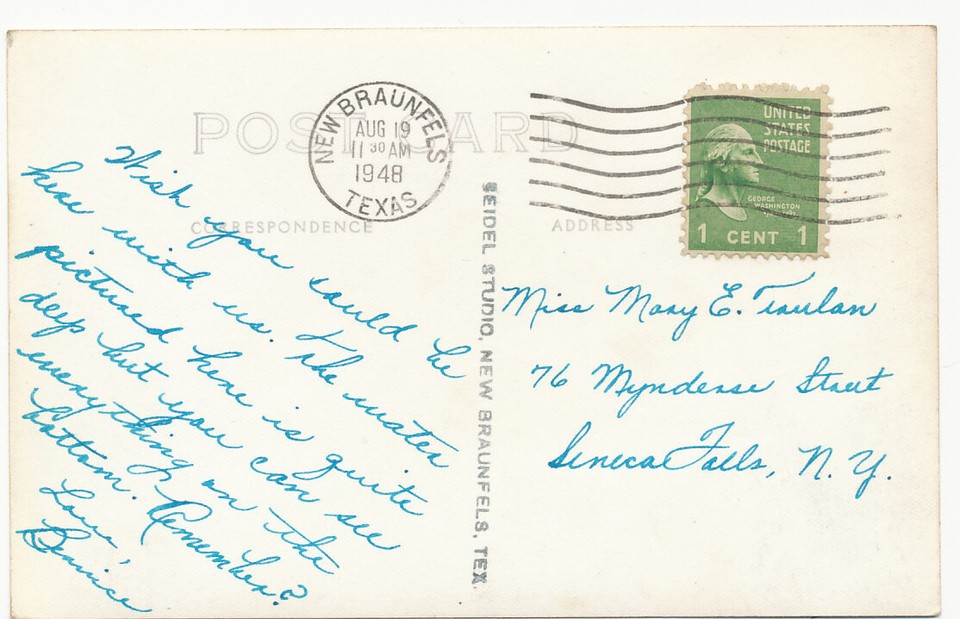 POST CARD
NEW BRAUNFELS
AUG 19
11 30 AM
1948
TEXAS
UNITED
STATES
POSTAGE
GEORGE
WASHINGTON
1 CENT 1
CORRESPONDENCE
ADDRESS
Wish you could be
here with us. The water
pictured here is quite
deep but you can see
everything on the
bottom. Remember?
Love,
Bernice
SEIDEL STUDIO, NEW BRAUNFELS, TEX.
Miss Mary E.
76 Mynderse Street
Seneca Falls, N. Y.